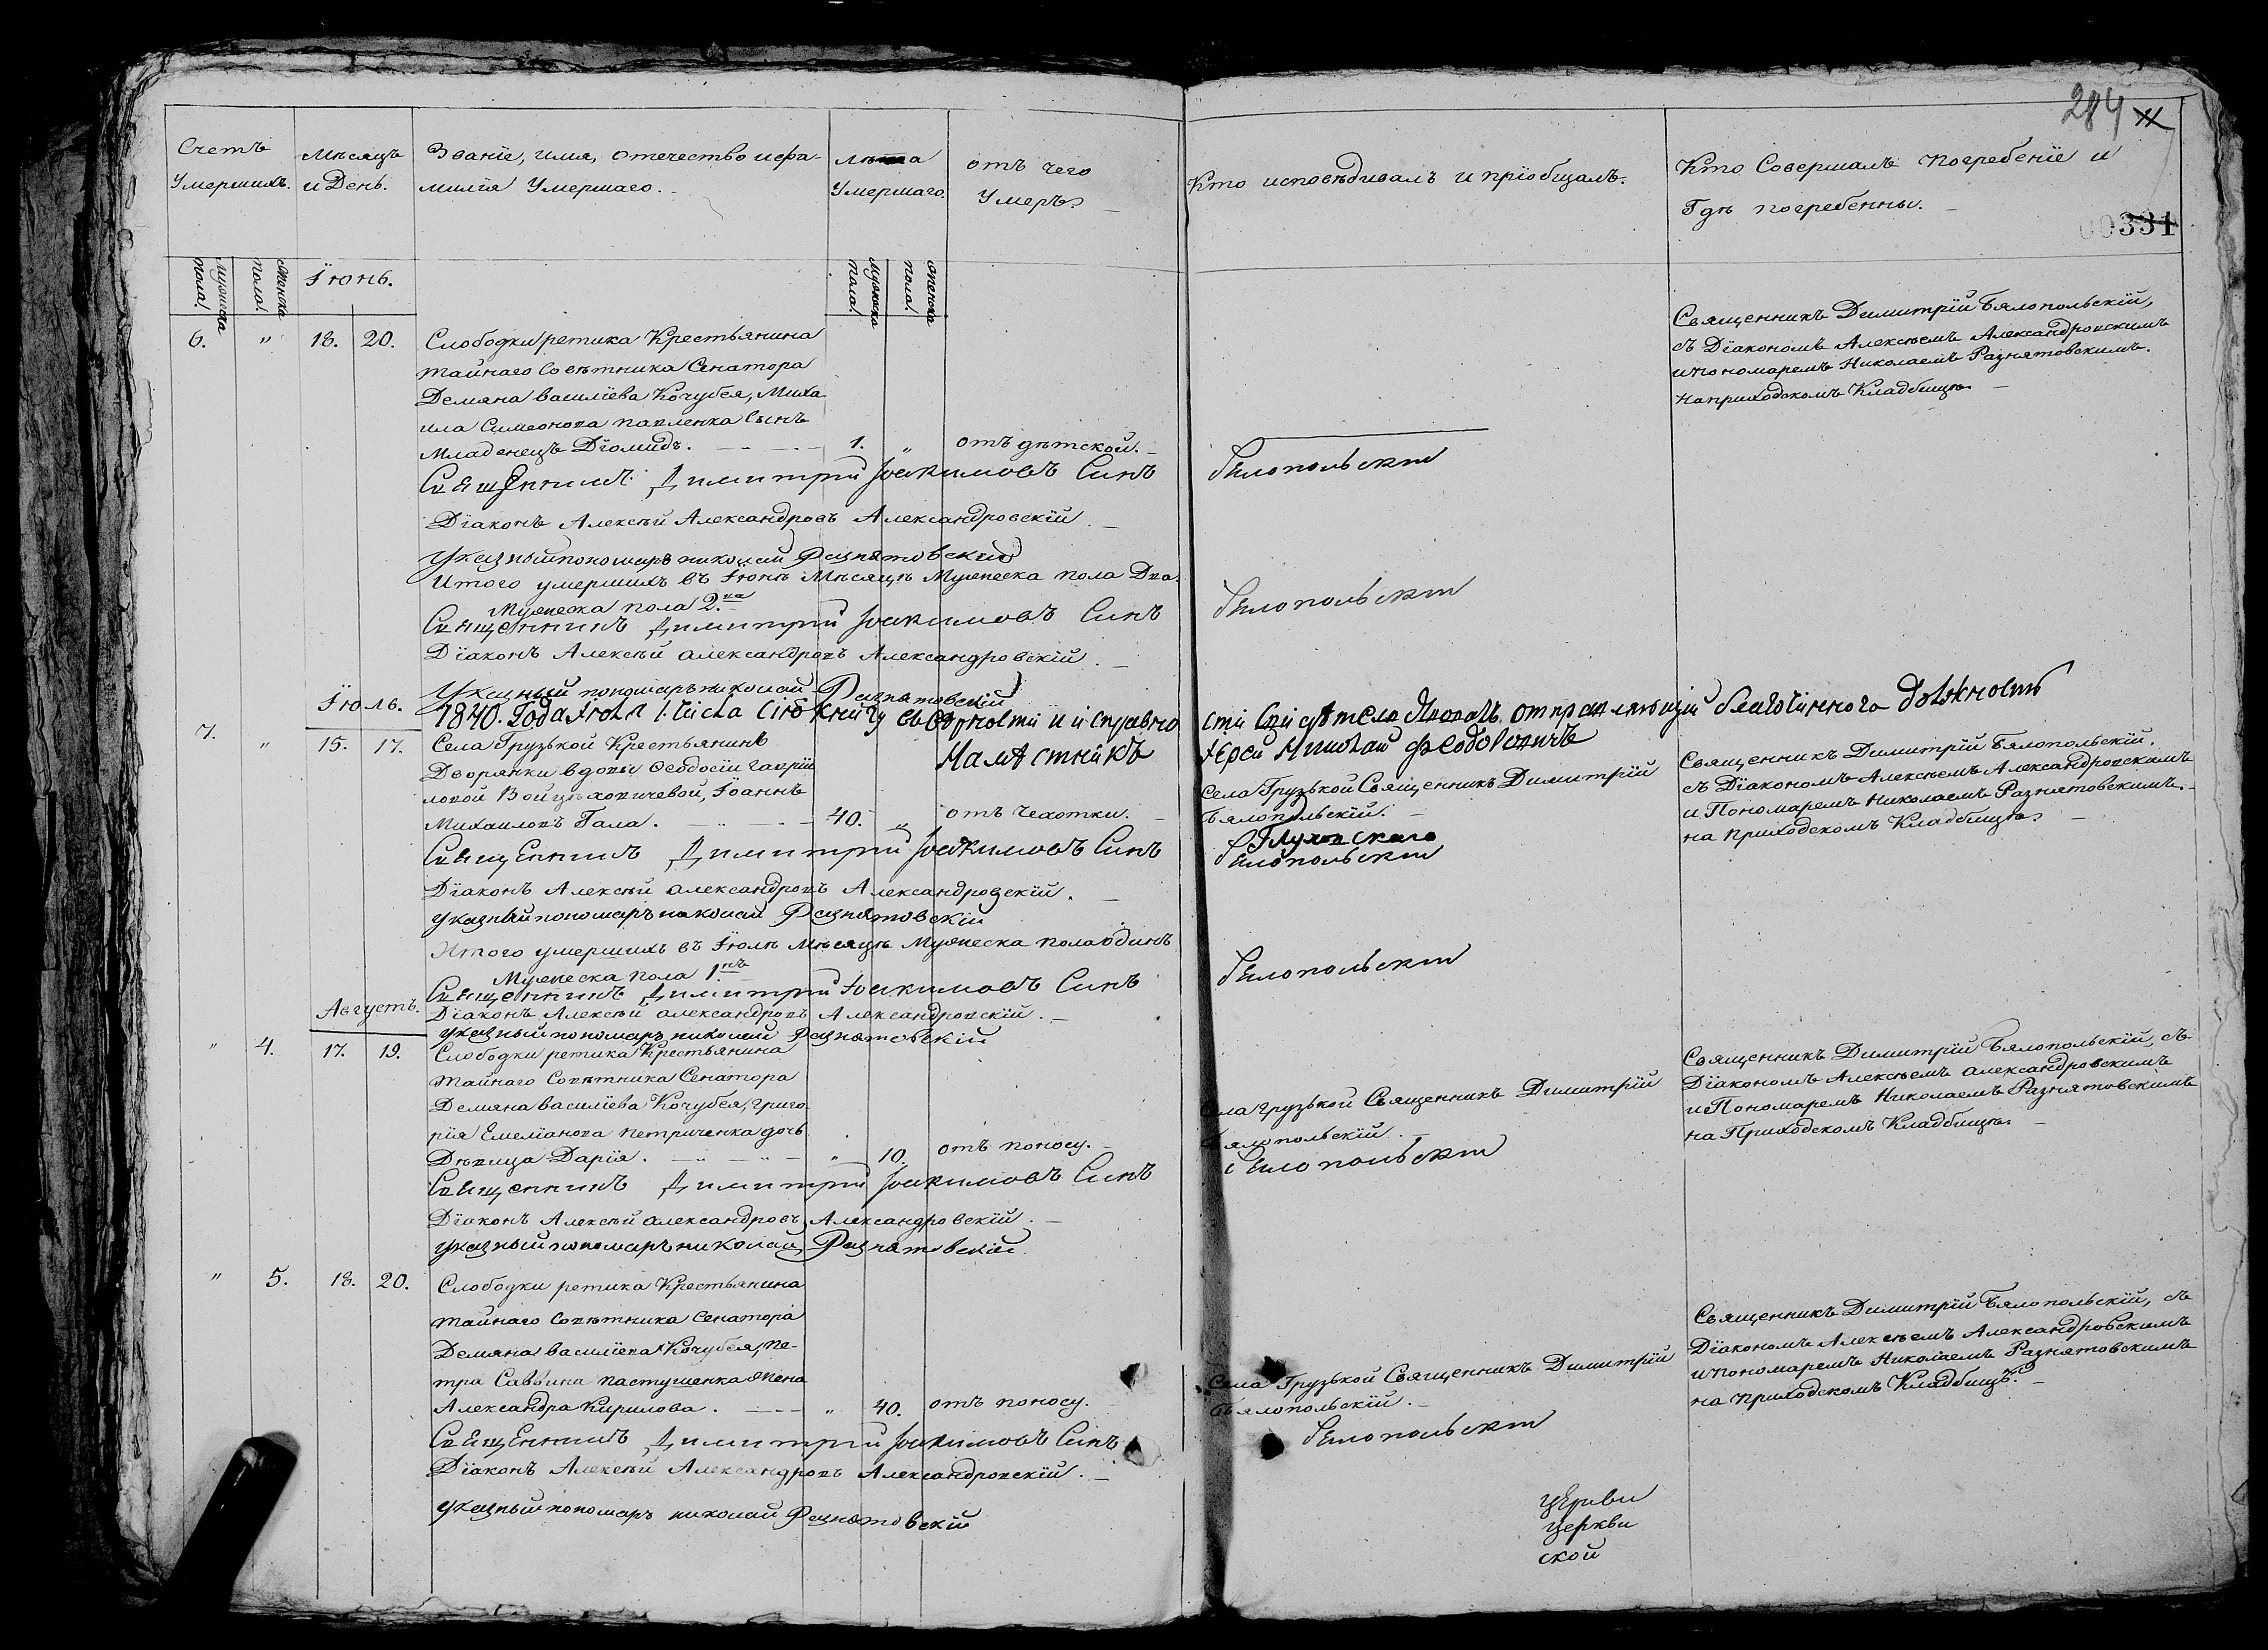 284
Счетъ Умершихъ.
Мѣсяцъ и День.
Званїе, имя, отечество и фа-
милїя Умершаго.
лѣта Умершаго.
отъ чего Умеръ.
Кто исповѣдивалъ и прїобщалъ.
Кто Совершалъ погребенїе и
Гдѣ погребенны.
00331
мужеска пола!
женска пола!
Їюнь.
мужеска пола!
женска пола!
6. " 18. 20.
Слободки ретика Крестьянина
тайнаго Совѣтника Сенатора
Демяна василїева Кочубея, Миха
ила Симеонова павленка Сынъ
Младенецъ Дїомидъ. 1. " отъ дѣтской.
Священникъ Димитрїй Бялопольскїй,
съ Дїакономъ Алексѣемъ Александровскимъ
и пономаремъ Николаемъ Разнятовскимъ.
на приходскомъ Кладбищѣ.
Священникъ Димитрий Іоакимовъ Синъ Белопольский
Дїаконъ Алексѣй Александровъ Александровскїй.
указный пономаръ николай Разнятовский
Итого умершихъ въ Їюнѣ Мѣсяцѣ Мужеска пола Два.
Мужеска пола 2.ва
Священникъ Димитрий Іоакимовъ Синъ Белопольский
Дїаконъ Алексѣй александровъ Александровскїй.
Указный пономаръ николай Разнятовскїй
Їюль.
1840. Года Июля 1. числа сїю книгу въ верности и исправно сти свидѣтелствовалъ отправляющїй благочинного должность
Намѣстникъ Іерей Николай Федоровичъ
7. " 15. 17.
Села Грузькой Крестьянинъ
Дворянки вдовы Феодосїи гаврїи
ловой Войцѣховичевой, Їоаннъ
Михаиловъ Гала. 40. " отъ Чахотки.
Села Грузькой Священникъ Димитрїй
Бялопольскїй.
Священникъ Димитрїй Бялопольскїй.
съ Дїакономъ Алексѣемъ Александровскимъ
и Пономаремъ Николаемъ Разнятовскимъ.
на приходскомъ Кладбищѣ.
Глуховского
Священникъ Димитрий Іоакимовъ Синъ Белопольский
Дїаконъ Алексѣй александровъ Александровскїй.
указный пономаръ николай Разнятовскїй
Итого умершихъ въ Їюлѣ мѣсяцѣ Мужеска пола одинъ
Мужеска пола 1.нъ
Священникъ Димитрий Іоакимовъ Синъ Белопольский
Августъ.
Дїаконъ Алексѣй александровъ Александровскїй.
указный пономаръ николай Разнятовскїй
" 4. 17. 19.
Слободки ретика Крестьянина
тайнаго Совѣтника Сенатора
Демяна василїева Кочубея, григо-
рїя Емелїанова петриченка дочь
Дѣвица Дарїя. " 10. отъ поносу.
Села грузькой Священникъ Димитрїй
Бялопольскїй.
Священникъ Димитрїй Бялопольскїй, съ
Дїакономъ Алексѣемъ александровскимъ
и Пономаремъ Николаемъ Разнятовскимъ
на Приходскомъ Кладбищѣ.
Священникъ Димитрий Іоакимовъ Синъ Белопольский
Дїаконъ Алексѣй александровъ Александровскїй.
указный пономаръ николай Разнятовскїй
" 5. 18. 20.
Слободки ретика Крестьянина
тайнаго Совѣтника Сенатора
Демяна василїева Кочубея, пе-
тра Саввина пастушенка жена
Александра Кирилова. " 40. отъ поносу.
Села Грузькой Священникъ Димитрїй
Бялопольскїй.
Священникъ Димитрїй Бялопольскїй, съ
Дїакономъ Алексѣемъ Александровскимъ
и пономаремъ Николаемъ Разнятовскимъ
на приходскомъ Кладбищѣ.
Священникъ Димитрий Іоакимовъ Синъ Белопольский
Дїаконъ Алексѣй Александровъ Александровскїй.
указный пономаръ николай Разнятовскїй
церкви
церкви
ской